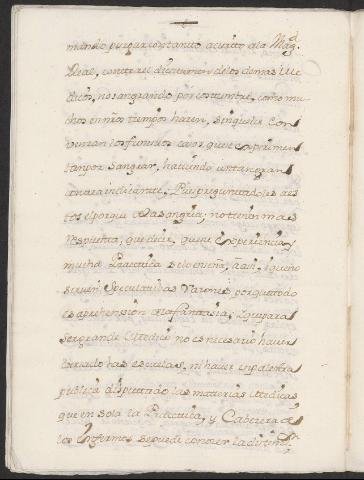 mando purgar con tanto acierto a la Mag.d
Real, contra el dictamen de los demas Me
dicos, no sangrando por costumbre, como mu
chos en nros tiempos hacen, sin que les con
venzan los funestos casos que experimen
tan por sangrar, haviendo un tan gran
contra indicante, Pues preguntandoles a es
tos el porque de la sangria; no tienen mas
respuesta, que decir, que su Experiencia y
mucha Practica se lo enseña, que no
sirven Speculativas Razones porque todo
es aprehension de la fantasia; que para
ser grande Medico no es necesario haver
cursado las escuelas, ni haver en palestra
publica disputado las materias Medicas,
que en sola la Practica, y Cabecera de
los Enfermos se puede conocer la